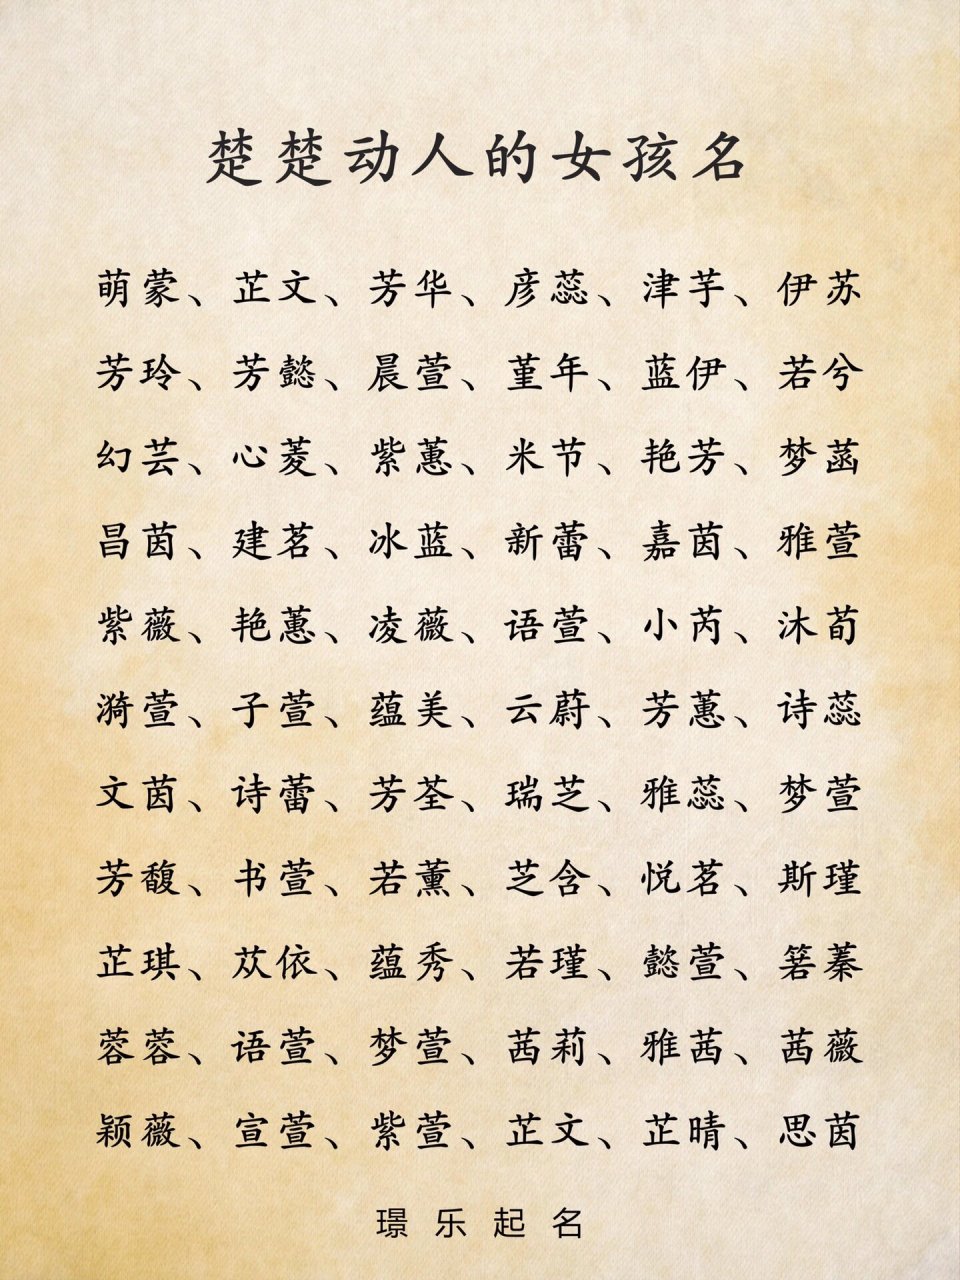 楚楚动人的女孩名
萌蒙、芷文、芳华、彦蕊、津芋、伊苏
芳玲、芳懿、晨萱、堇年、蓝伊、若兮
幻芸、心菱、紫蕙、米节、艳芳、梦菡
昌茵、建茗、冰蓝、新蕾、嘉茵、雅萱
紫薇、艳蕙、凌薇、语萱、小芮、沐荀
漪萱、子萱、蕴美、云蔚、芳蕙、诗蕊
文茵、诗蕾、芳荃、瑞芝、雅蕊、梦萱
芳馥、书萱、若薰、芝含、悦茗、斯瑾
芷琪、苡依、蕴秀、若瑾、懿萱、箬蓁
蓉蓉、语萱、梦萱、茜莉、雅茜、茜薇
颖薇、宣萱、紫萱、芷文、芷晴、思茵
璟乐起名